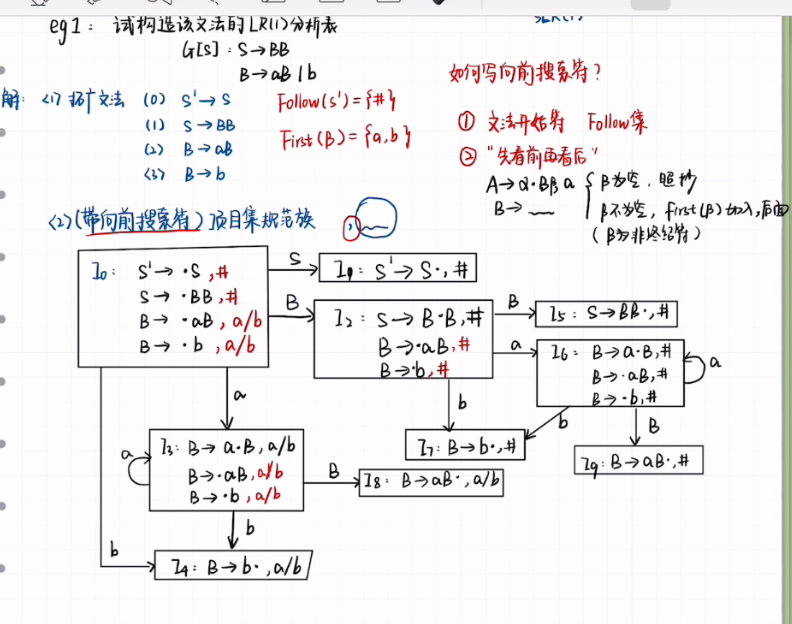 SLR(1)
eg1: 试构造该文法的LR(1)分析表
G[S]: S→BB
B→aB|b
如何写向前搜索符?
解: <1> 拓广文法 (0) S'→S Follow(S')={#}
(1) S→BB First(B)={a,b}
(2) B→aB
(3) B→b
① 文法开始符 Follow集
② "先看前再看后"
A→α·Bβ, a { β为空, 照抄
B→ __ β不为空, first(β)加入, 后面
(β为非终结符)
<2> (带向前搜索符) 项目集规范族
I0: S'→·S,#
S→·BB,#
B→·aB, a/b
B→·b, a/b
S
I1: S'→S·,#
B
I2: S→B·B,#
B→·aB,#
B→·b,#
B
I5: S→BB·,#
a
I6: B→a·B,#
B→·aB,#
B→·b,#
a
a
b
b
B
I7: B→b·,#
I9: B→aB·,#
a
I3: B→a·B, a/b
B→·aB, a/b
B→·b, a/b
B
I8: B→aB·, a/b
b
b
I4: B→b·, a/b